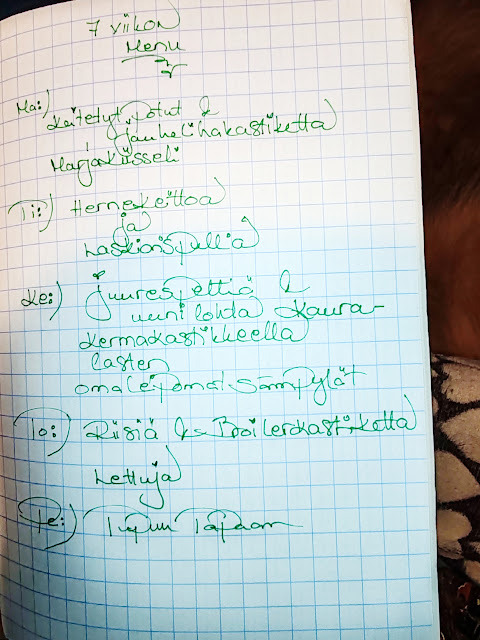 7 viikon
Menu
Ma:) Keitetyt potut &
jauhelihakastiketta
Marjakiisseli
Ti:) Hernekeittoa
ja
Laskiaispullia
Ke:) juurespettiä &
uunilohta kaura-
kermakastikkeella
lasten
omaleipomat sämpylät
To:) Riisiä & Broilerkastiketta
Lettuja
Pe:) Tupun Tapaan